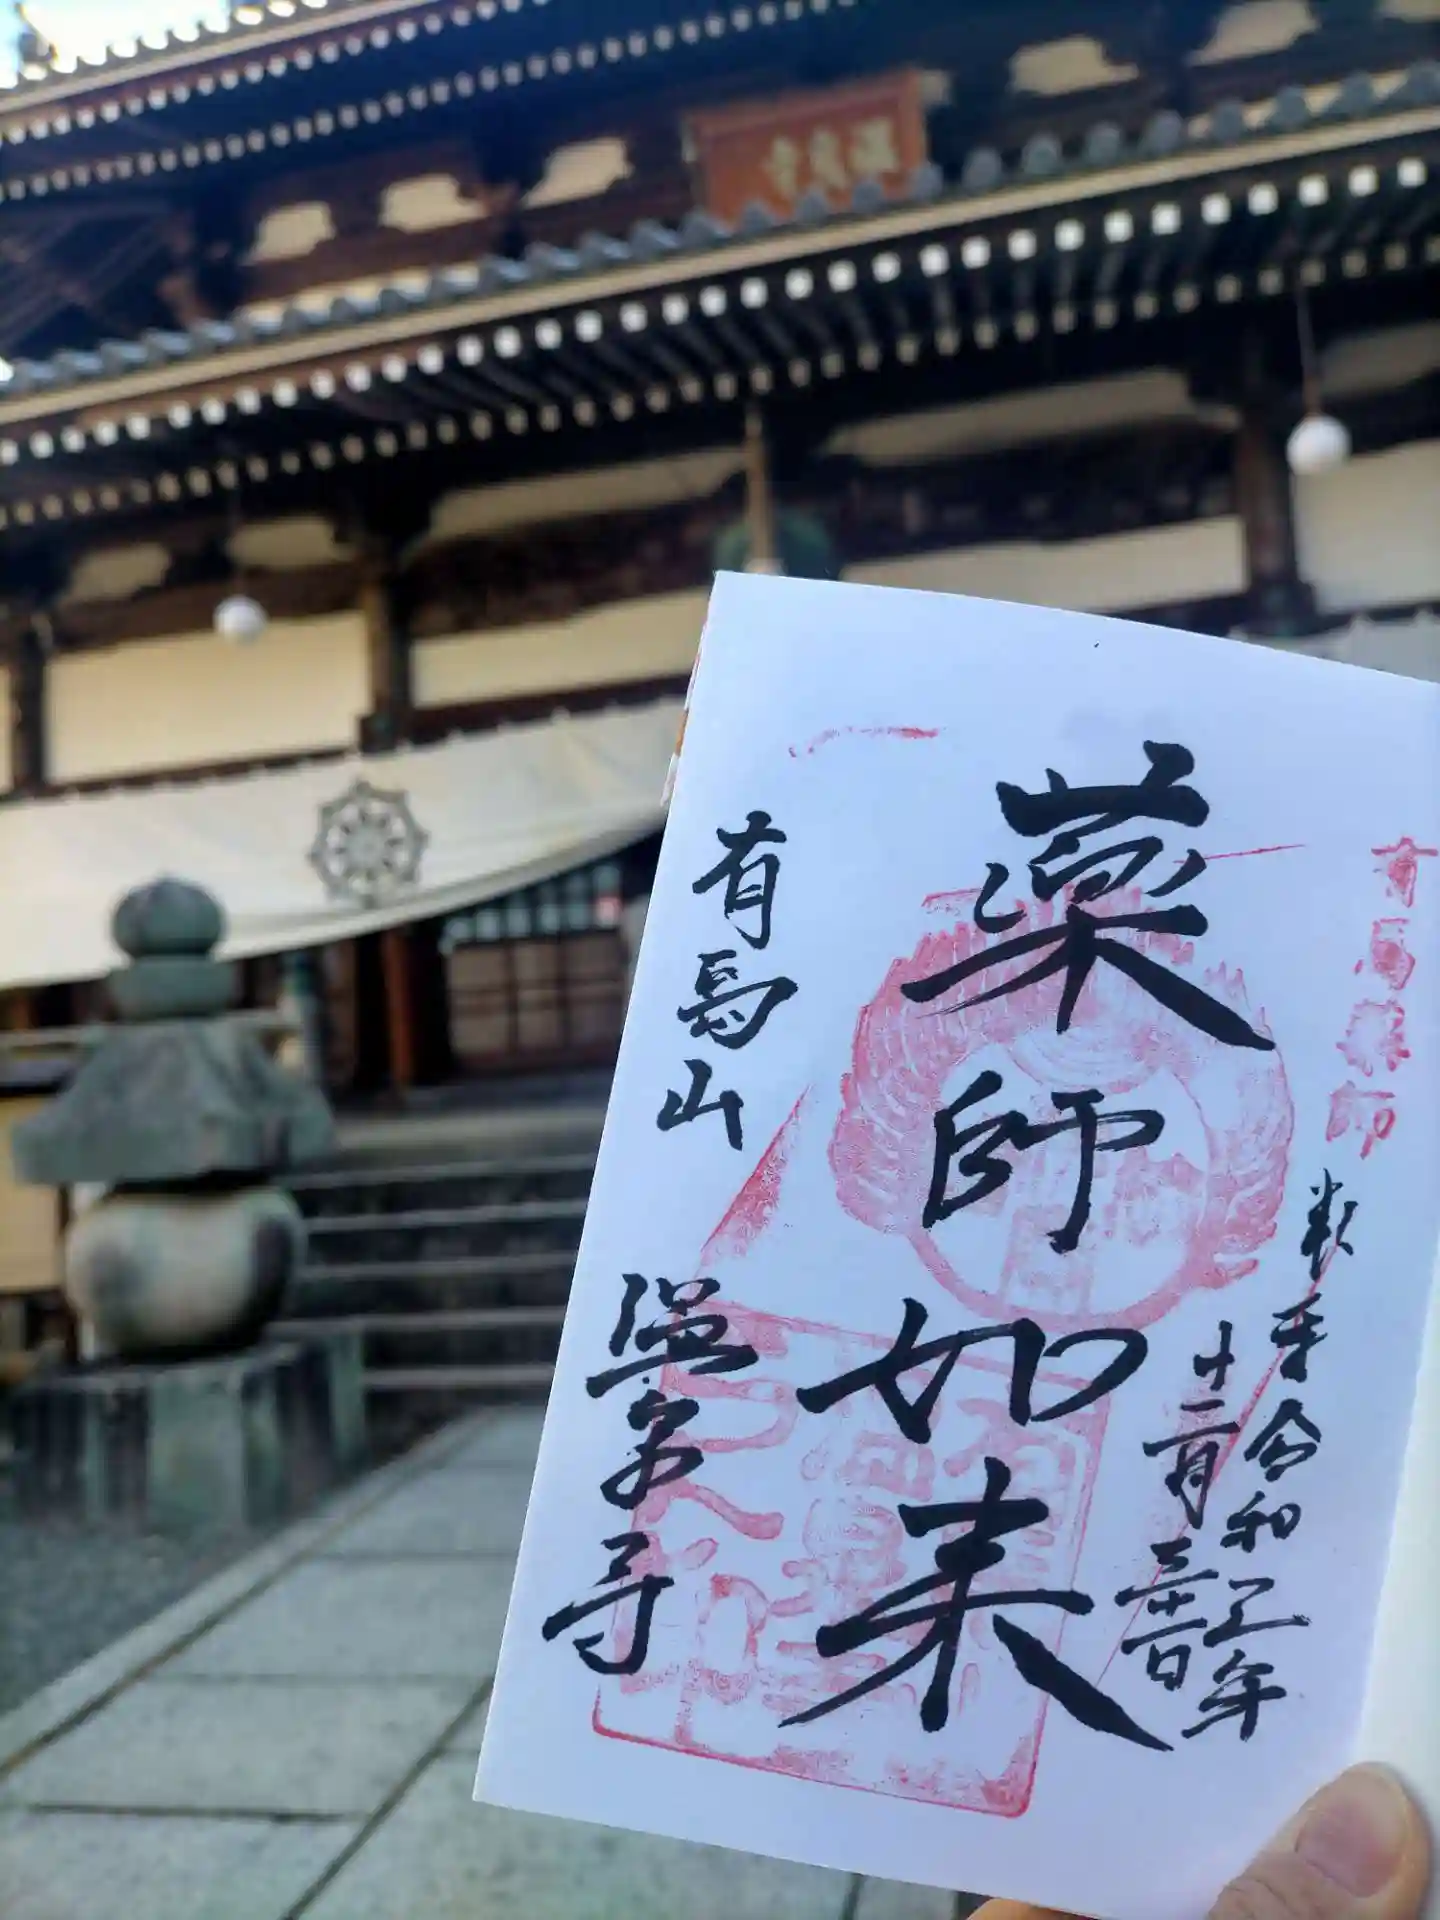 温泉寺
有馬薬師
令和五年
十二月三十一日
薬師如来
有馬山
温泉寺